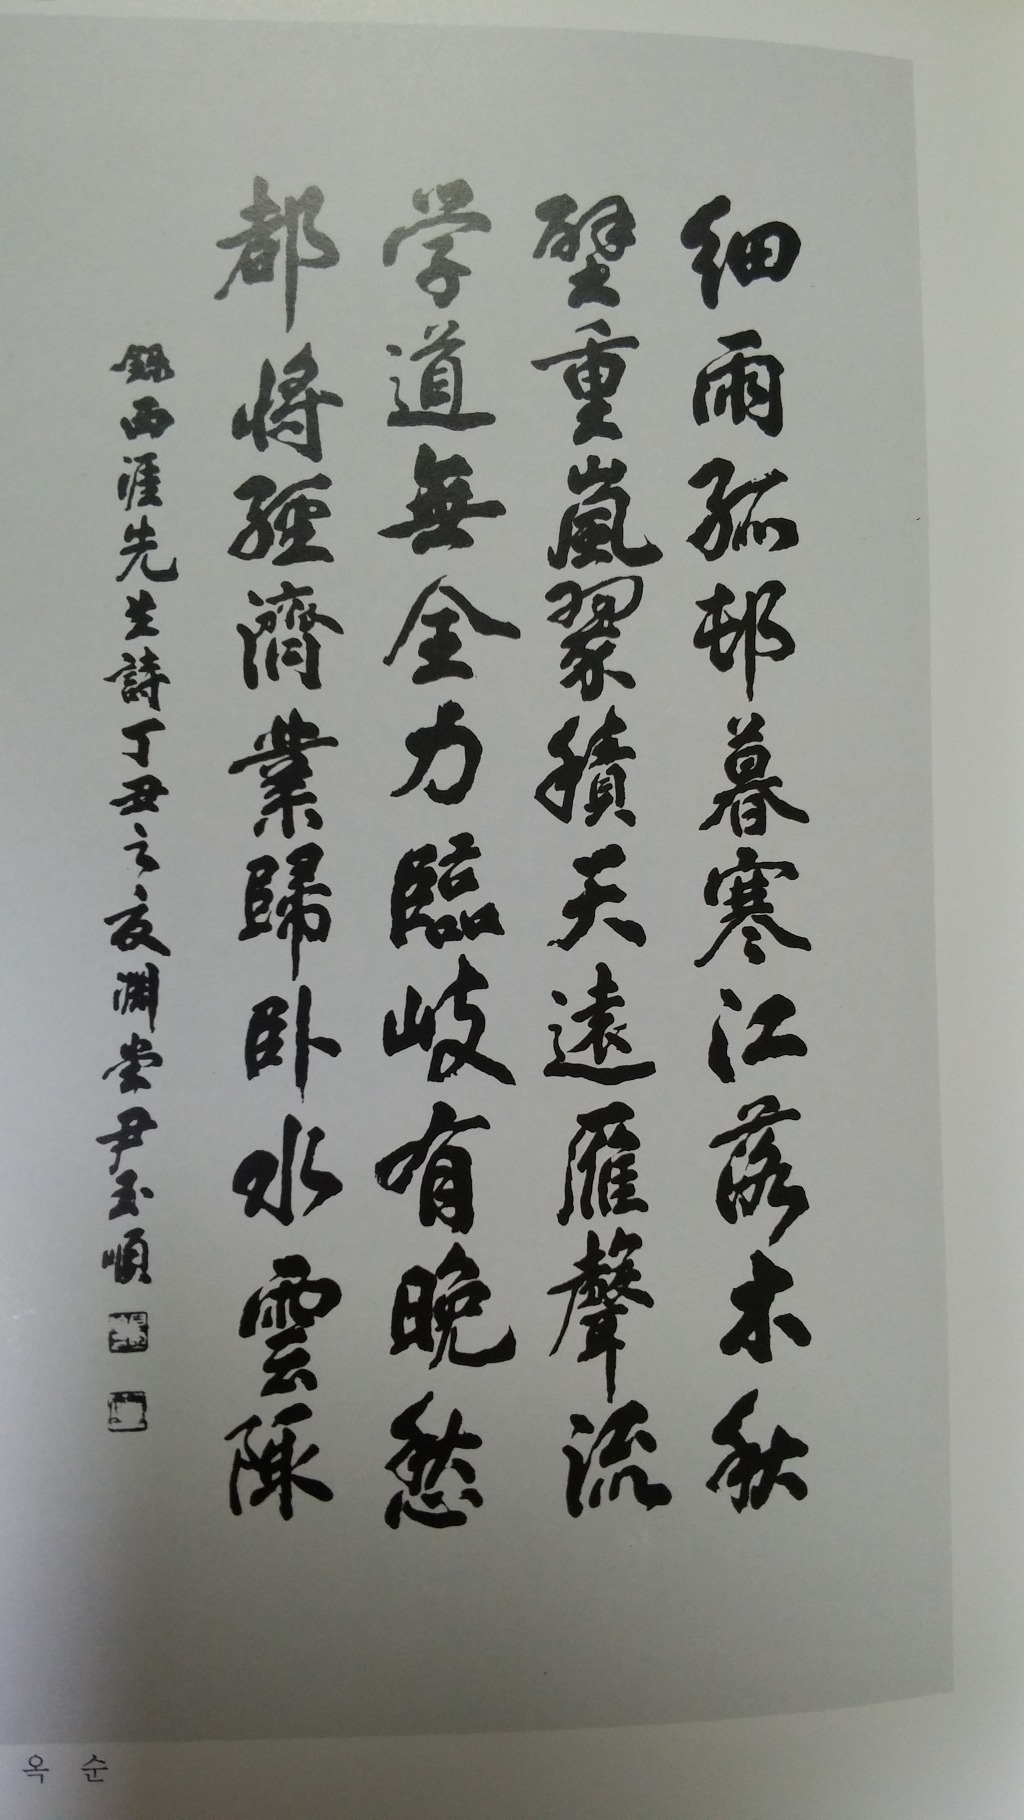 細雨孤邨暮寒江落木秋
壁重嵐翠積天遠雁聲流
学道無全力臨岐有晚愁
都將經濟業歸卧水雲陬
錄西涯先生詩丁丑之夏淵堂尹玉順
옥 순